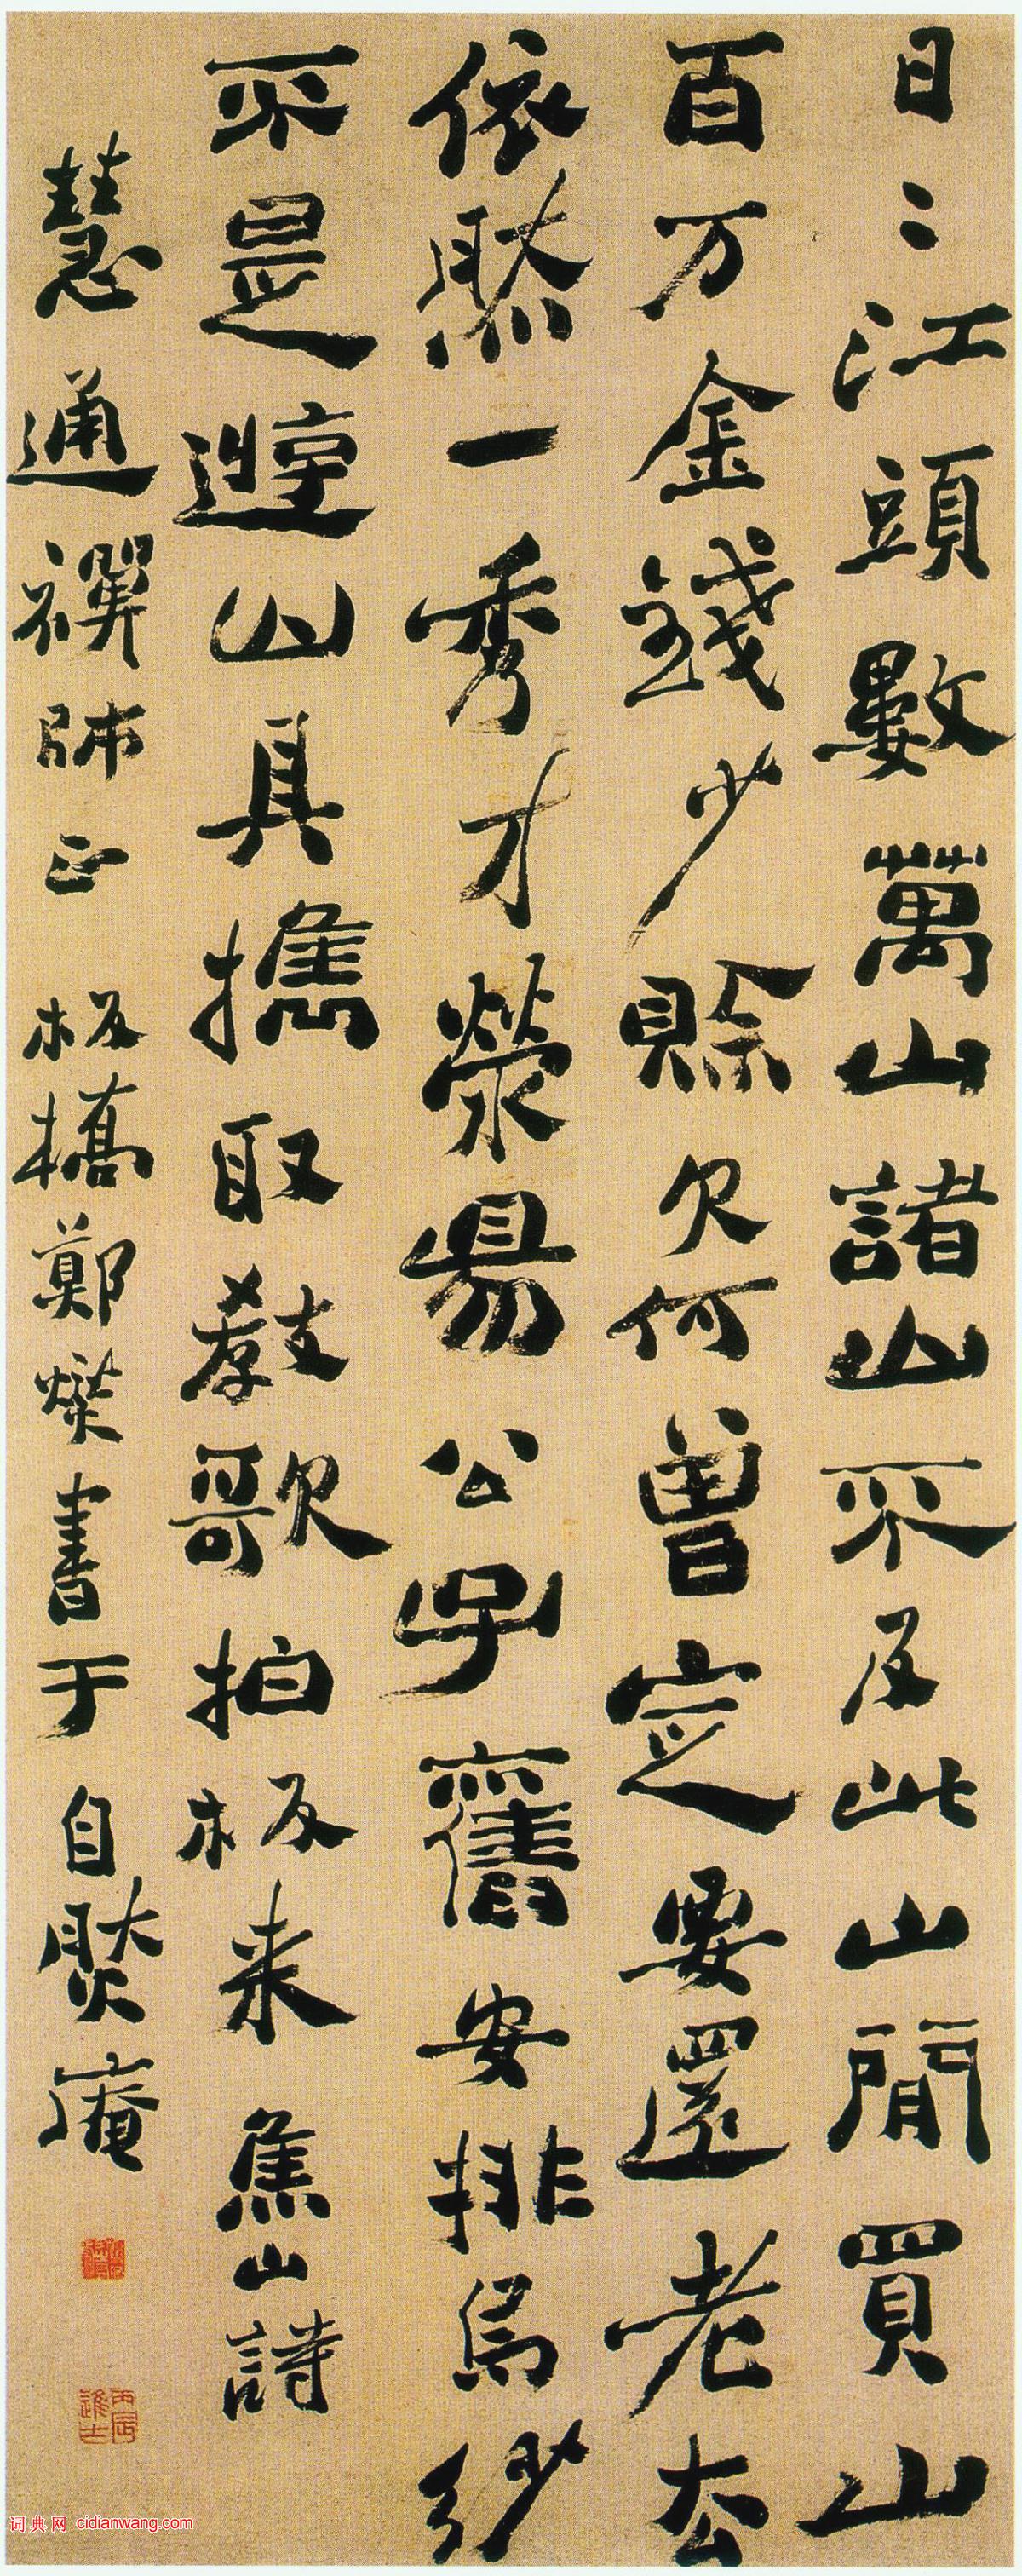 日〻江頭數萬山諸山不及此山閒買山
百万金錢少賒欠何曾定要還老去
依然一秀才滎陽公子舊安排烏紗
不是遊山具攜取教歌拍板来 焦山詩
慧通禪師正 板橋鄭燮書于自然庵
丙辰進士
词典网 cidianwang.com